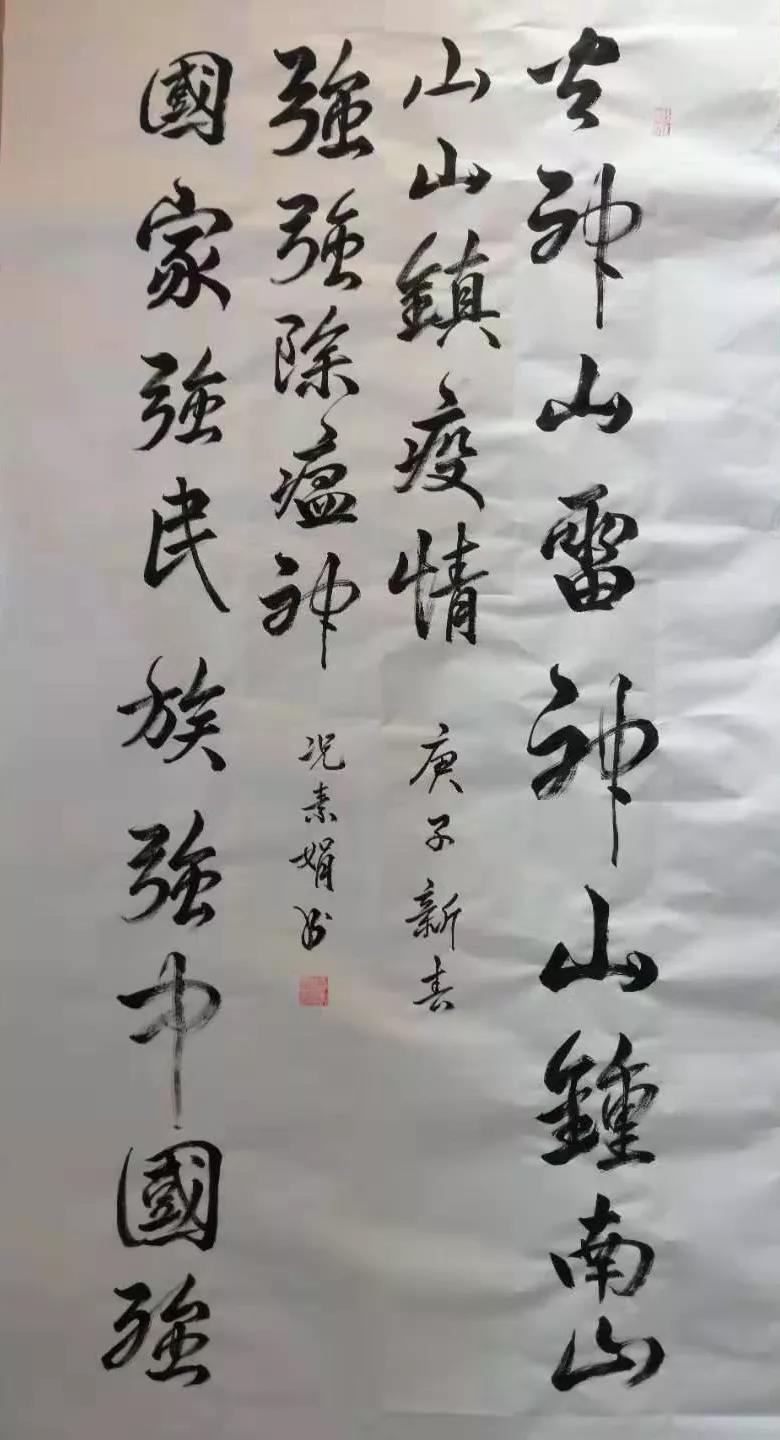 火神山雷神山鍾南山
山山鎮疫情
庚子新春
國家強民族強中國強
強強除瘟神
况素娟书